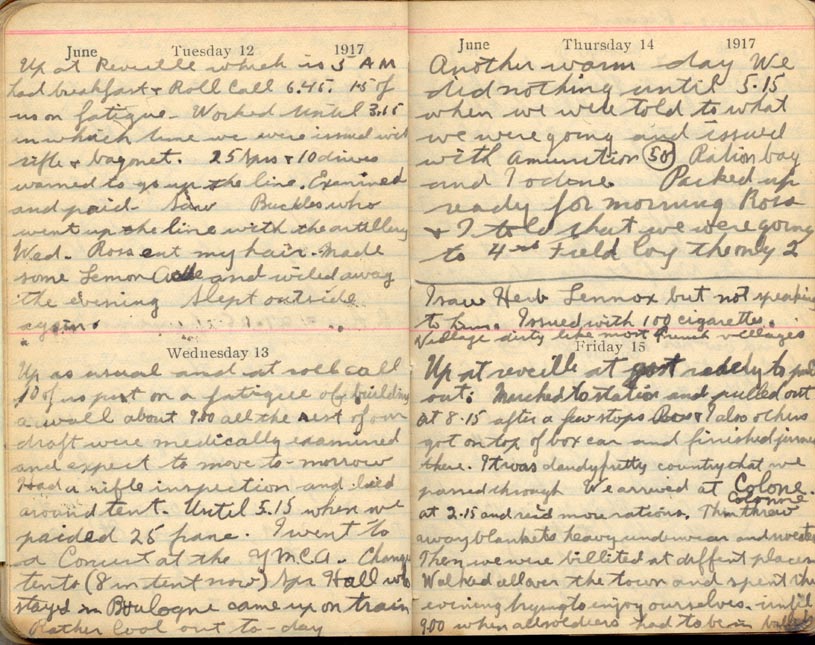 June Tuesday 12 1917
Up at Reveille which is 5 AM
had breakfast & Roll Call 6.45. 15 of
us on fatigue. Worked until 3.15
in which time we were issued with
rifle & bayonet. 25 Sprs & 10 drives
warned to go up the line. Examined
and paid. Saw Buckles who
went up the line with the artillery
Wed. Ross cut my hair. Made
some Lemon Ade and wiled away
the evening Slept outside
again.
Wednesday 13
Up as usual and at roll call
10 of us put on a fatigue of building
a wall about 9.00 all the rest of our
draft were medically examined
and expect to move to-morrow
Had a rifle inspection and laid
around tent. Until 5.15 when we
paided 25 franc. I went to
a Concert at the Y.M.C.A. Change
tents (8 in tent now) Spr Hall who
stayed in Boulogne came up on train
Rather Cool out to-day
June Thursday 14 1917
Another warm day We
did nothing until 5.15
when we were told to what
we were going and issued
with amunition (50) Ration bag
and Iodine. Packed up
ready for morning Ross
& I told that we were going
to 4th Field Coy the only 2
I saw Herb Lennox but not speaking
to him. Issued with 100 cigarettes.
Village dirty like most french villages
Friday 15
Up at reveille at got ready to pull
out. Marched to station and pulled out
at 8.15 after a few stops Ross & I also others
got on top of box car and finished journey
there. It was dandy pretty country that we
passed through We arrived at Colone.
Colonne
at 2.15 and rec'd more rations. Then threw
away blankets heavy underwear and sweater
Then we were billited at diffent places
Walked all over the town and spent the
evening trying to enjoy ourselves. until
9.00 when all soldiers had to be in billets